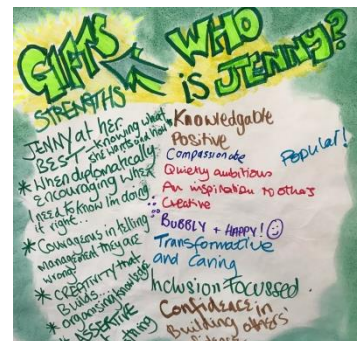 GIFTS
STRENGTHS
JENNY at her
BEST - knowing what
she wants and how
* When diplomatically
encouraging when
I need to know I'm doing
it right...
* Courageous in telling
management they are
wrong
* CREATIVITY that
Builds...
* organising knowledge
* ASSERTIVE
thing
WHO
is JENNY?
Knowledgable
Positive
Compassionate
Popular!
Quietly ambitious
An inspiration to others
Creative
BUBBLY + HAPPY!
Transformative
and Caring
Inclusion Focussed.
Confidence in
Building others